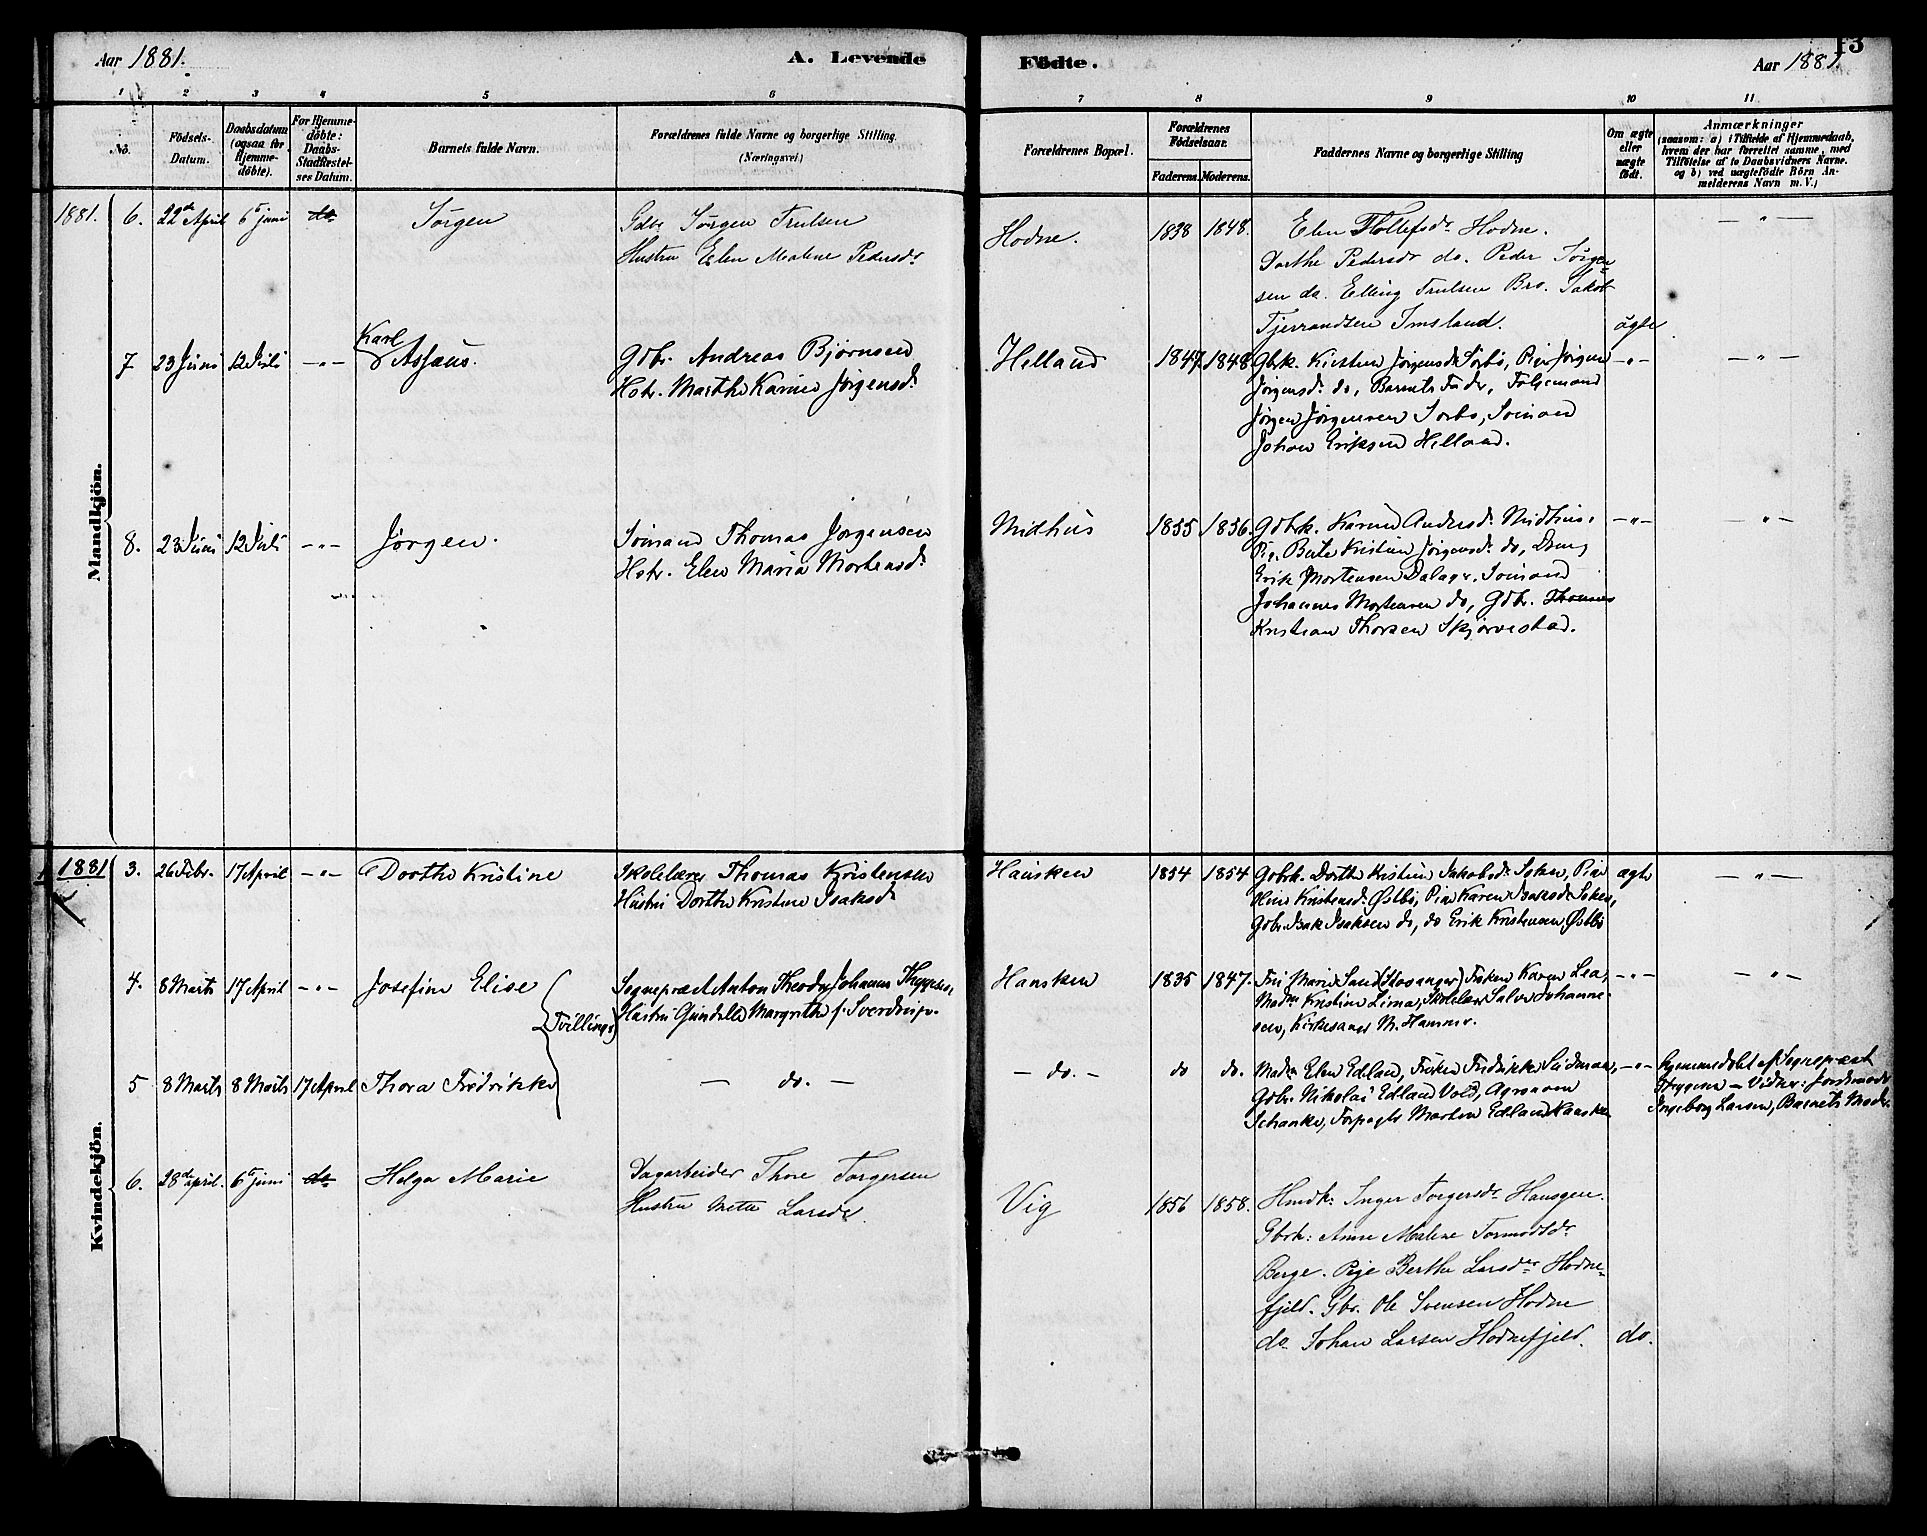 Aar 1881.
A. Levende
Födte.
Aar 1881.
13
1 2 3 4 5 6 7 8 9 10 11
No.
Födsels-Datum.
Daabsdatum (ogsaa for Hjemme-döbte).
For Hjemme-döbte: Daabs-Stadfæstel-ses Datum.
Barnets fulde Navn.
Forældrenes fulde Navne og borgerlige Stilling. (Næringsvei)
Forældrenes Bopæl.
Forældrenes Födselsaar.
Faderens. Moderens.
Faddernes Navne og borgerlige Stilling
Om ægte eller uægte födt.
Anmærkninger
(saasom: a) i Tilfælde af Hjemmedaab, hvem der har forrettet samme, med Tilföielse af to Daabsvidners Navne. og b) ved uægtefödte Börn An-melderens Navn m. V.)
Mandkjön.
1881. 6. 22de April 6te juni do Jørgen
Gdbr Jørgen Trulsen
Hustru Elen Malene Pedersdr
Hodne. 1838 1848.
Elen Tollefsdr Hodne.
Dorthe Pedersdr do. Peder Jörgen-
sen do. Elling Trulsen Bro. Jakob
Tjerrandsen Imsland. ögte
— " —
7 23 Juni 12 Juli —"— Karl Assaus.
Gdbr. Andreas Bjørnsen
Hstr. Marthe Karine Jørgensd.
Helland 1847. 1848
Gbrk. Kirstine Jørgensdr Sørbø, Pien Jørgine —"—
Jørgensdr do, Barnets Fader,
Jørgen Jørgensen Sørbø, Sömand
Johan Eriksen Helland.
— " —
8. 23 Juni 12 Juli —"— Jørgen.
Sömand Thomas Jørgensen
Hstr. Elen Maria Mortensd.
Midhus 1855 1856.
Gdbrk. Karine Andersd. Midhus, —"—
Pig. Berte Kristine Jørgensd. do,
Erik Mortensen Dalager, Sömand
Johannes Mortensen do, Gdbr. Thomas
Kristian Thorsen Skjørvestad.
— " —
Kvindekjön.
1881 3. 26 Febr. 17 April —"— Dorthe Kristine
Skolelærer Thomas Kristensen
Hustru Dorthe Kristine Isaksd.
Hausken 1854 1854
Gdbrk. Dorthe Kristine Jakobsd. Soken, Pien ægte
Oline Kristensd. Østbø, Pien Karen Isaksdr Soken,
Gdbr. Isak Isaksen do, do Erik Kristensen Østbø
— " —
4. 8 Marts 17 April —"— Josefine Elise
Sognepræst Anton Theodor Johannes Thygesen
Hustru Gunelle Margrethe f. Sverdrup.
Tvillinger
Hausken 1835 1847.
Fru Marie Sand (Stavanger) Frøken Karen Lea, —"—
Madm Kristine Lima, Skolelær Salve Johanne-
sen, Kirkesanger M. Hammer.
— " —
5 8 Marts 8 Marts 17 April Thora Fredrikke
— do. —
— do. — do do.
Madm Elen Edland, Frøken Fredrikke —"—
Gdbr. Nikolai Edland Vold, Agronom
Schanke, Forpagter Morten Edland Hausken
Hjemmedøbt af Sognepræst
Thygesen — Vidner: Jordemoder
Ingeborg Larsen, Barnets Moder.
6. 28de april. 6te juni do Helga Marie
Dagarbeider Thore Torgersen
Hustru Mette Larsdr
Vig 1856 1858.
Hmdk: Inger Torgersdr Hausgen.
Gbrk: Anne Malene Tormodsdr
Berge. Pige Berthe Larsdr Hodne-
fjeld. Gbr. Ole Svensen Hodne
do Johan Larsen Hodnefjeld. do.